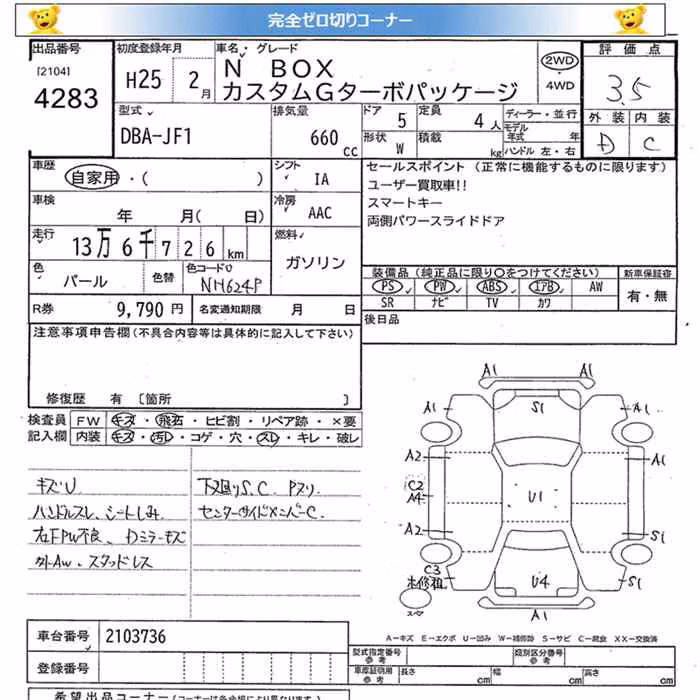 完全ゼロ切りコーナー
出品番号
[2104]
4283
初度登録年月
H25 2月
車名・グレード
N BOX
カスタムGターボパッケージ
2WD
4WD
評価点
3.5
外装 内装
D C
型式
DBA-JF1
排気量
660 cc
ドア 5
形状 W
定員 4人
積載 kg
ディーラー・並行
モデル年式 年
ハンドル 左・右
車歴
自家用・( )
シフト
IA
セールスポイント (正常に機能するものに限ります)
ユーザー買取車!!
スマートキー
両側パワースライドドア
車検
年 月( 日)
冷房
AAC
走行
13万6千726km
燃料
ガソリン
色
パール
色替
色コードNO
NH624P
装備品 (純正品に限り○をつけてください)
新車保証書
PS PW ABS エアB AW
SR ナビ TV カワ
有・無
R券 9,790円
名変通知期限 月 日
後日品
注意事項申告欄(不具合内容等は具体的に記入して下さい)
修復歴 有 [箇所 ]
検査員
記入欄
FW キズ・飛石・ヒビ割・リペア跡・×要
内装 キズ・汚レ・コゲ・穴・スレ・キレ・破レ
キズU
ハンドルスレ、シートしみ
右FPW不良、Dミラーキズ
外AW、スタッドレス
下廻りS.C. Pスリ
センターサイドメンバーC.
A1 A1
A1 S1 A1
A2 A1
C2
A4 U1
A2 S1
C3
未修祖 U4 S1
A1
A-キズ E-エクボ U-凹み W-補修跡 S-サビ C-腐食 XX-交換済
車台番号 2103736
登録番号
型式指定番号
参考
類別区分番号
参考
車庫証明用
参考
長さ cm 幅 cm 高さ cm
希望出品コーナー